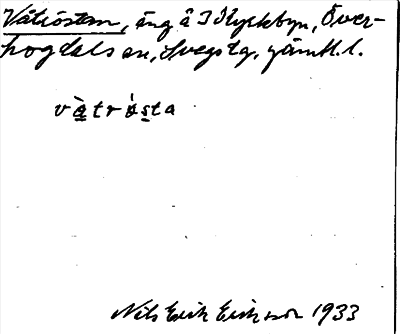 Våtröstan, äng å Ytlyskbyn, Över-
hogdals sn, Svegs tg, Jämtl. l.
vàtrósta
Nils Erik Eriksson 1933